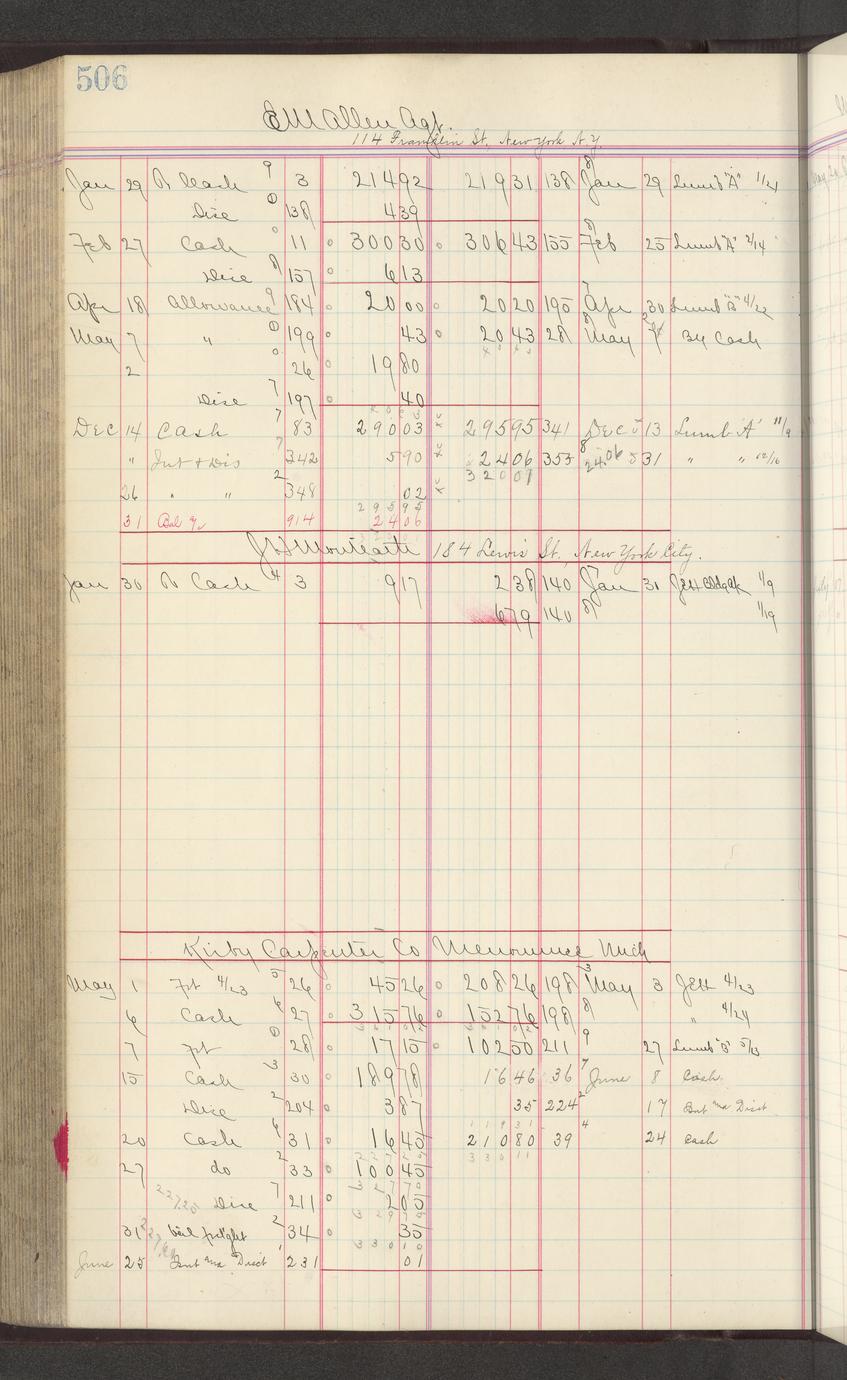 506
E M Allen Agt.
114 Franklin St, New York N.Y.
Jan 29 By Cash 9 3 214 92 219 31 138 8 Jan 29 Lumb "A" 1/21
Disc 0 138 4 39
Feb 27 Cash 0 11 300 30 306 43 155 8 Feb 25 Lumb "A" 2/14
Disc 8 157 6 13
Apr 18 Allowance 9 184 20 00 20 20 195 7 Apr 30 Lumb "B" 4/22
May 7 " 0 199 43 20 43 28 8 May 2 By Cash
2 0 26 19 80
Disc 7 197 40
Dec 14 Cash 7 83 290 03 295 95 341 Dec 13 Lumb "A" 11/9
" Int & Dis 7 342 5 90 24 06 355 8 24.06 31 " " 12/16
320 01
26 " " 2 348 02
295 95
31 Bal 914 24 06
J H Monteath 184 Lewis St., New York City.
Jan 30 By Cash 4 3 9 17 2 38 140 7 Jan 30 JEH 1/9
6 79 140 8 1/19
Kirby Carpenter Co Menominee Mich
May 1 Frt 4/23 5 26 45 26 208 26 198 3 May 3 JEH 4/23
6 Cash 6 27 315 76 152 76 198 8 " 4/24
7 Frt 0 28 17 15 102 50 211 9 27 Lumb "B" 5/13
15 Cash 3 30 189 78 16 46 36 7 June 8 Cash
Disc 2 204 3 87 35 224 2 17 Int and Disct
20 Cash 6 31 16 45 210 80 39 4 24 Cash
27 do 2 33 100 45
Disc 7 211 2 05
31 bal freight 2 34 35
June 25 Int and Disct 1 231 01